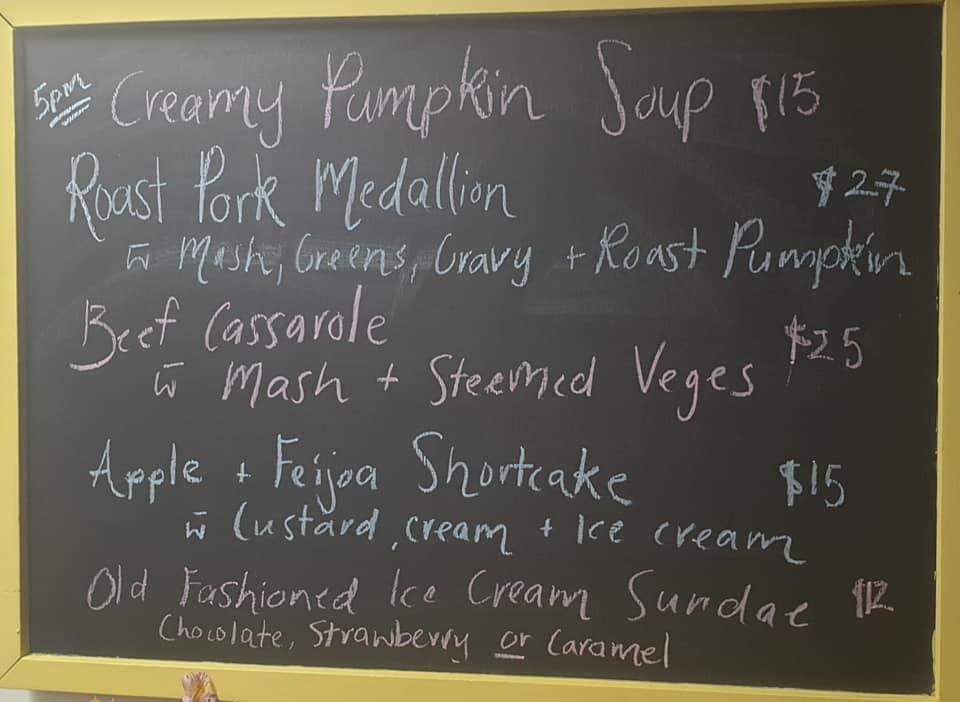 5pm Creamy Pumpkin Soup $15
Roast Pork Medallion $27
w̄ Mash, Greens, Gravy + Roast Pumpkin
Beef Cassarole $25
w̄ Mash + Steemed Veges
Apple + Feijoa Shortcake $15
w̄ Custard, cream + Ice cream
Old Fashioned Ice Cream Sundae $12
Chocolate, Strawberry or Caramel